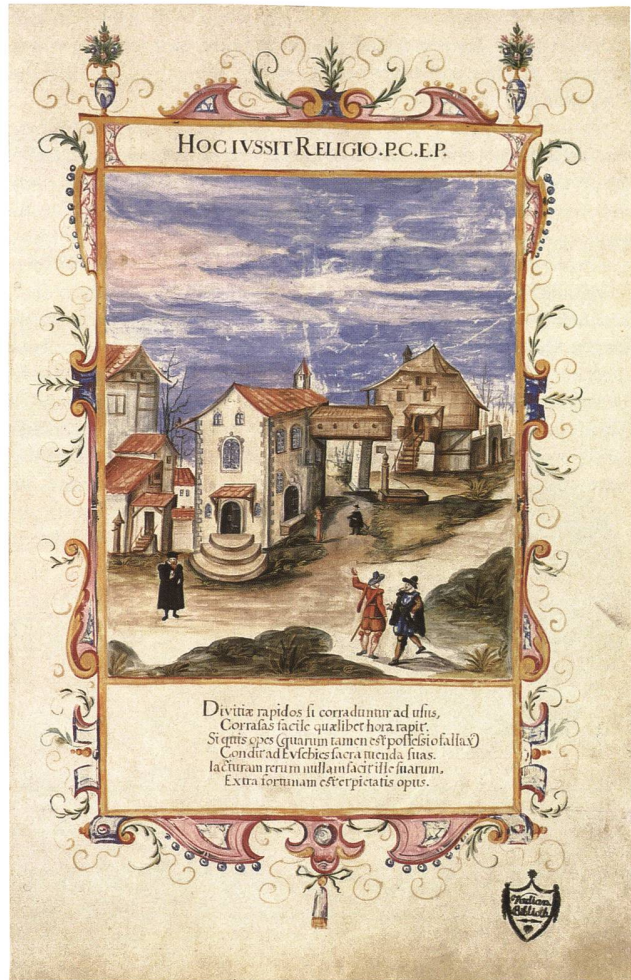 HOC IVSSIT RELIGIO.P.C.E.P.
Divitiæ rapidos si corraduntur ad usus,
Corrasas facile quælibet hora rapit.
Si quis opes (quarum tamen est possessio fallax)
Condit ad Eusebies sacra tuenda suas.
Iacturam rerum nullam facit ille suarum,
Extra fortunam est er pietatis opus.
Vadian.
Biblioth.